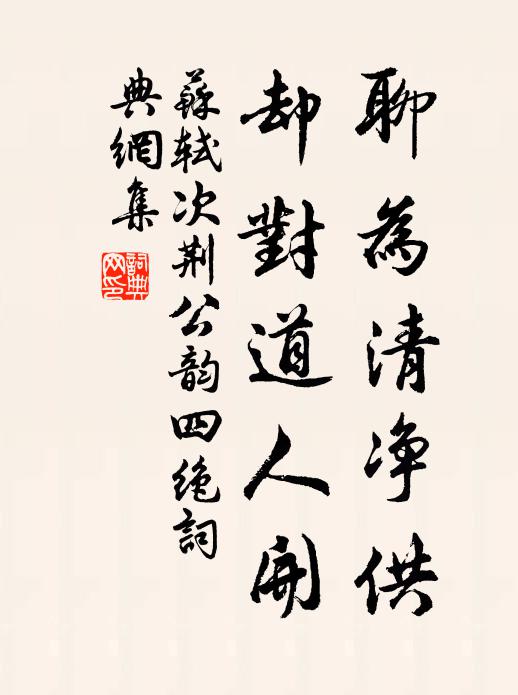 聊為清净供
却對道人開
蘇軾次荆公韵四绝詞
典網集
詞典
网印